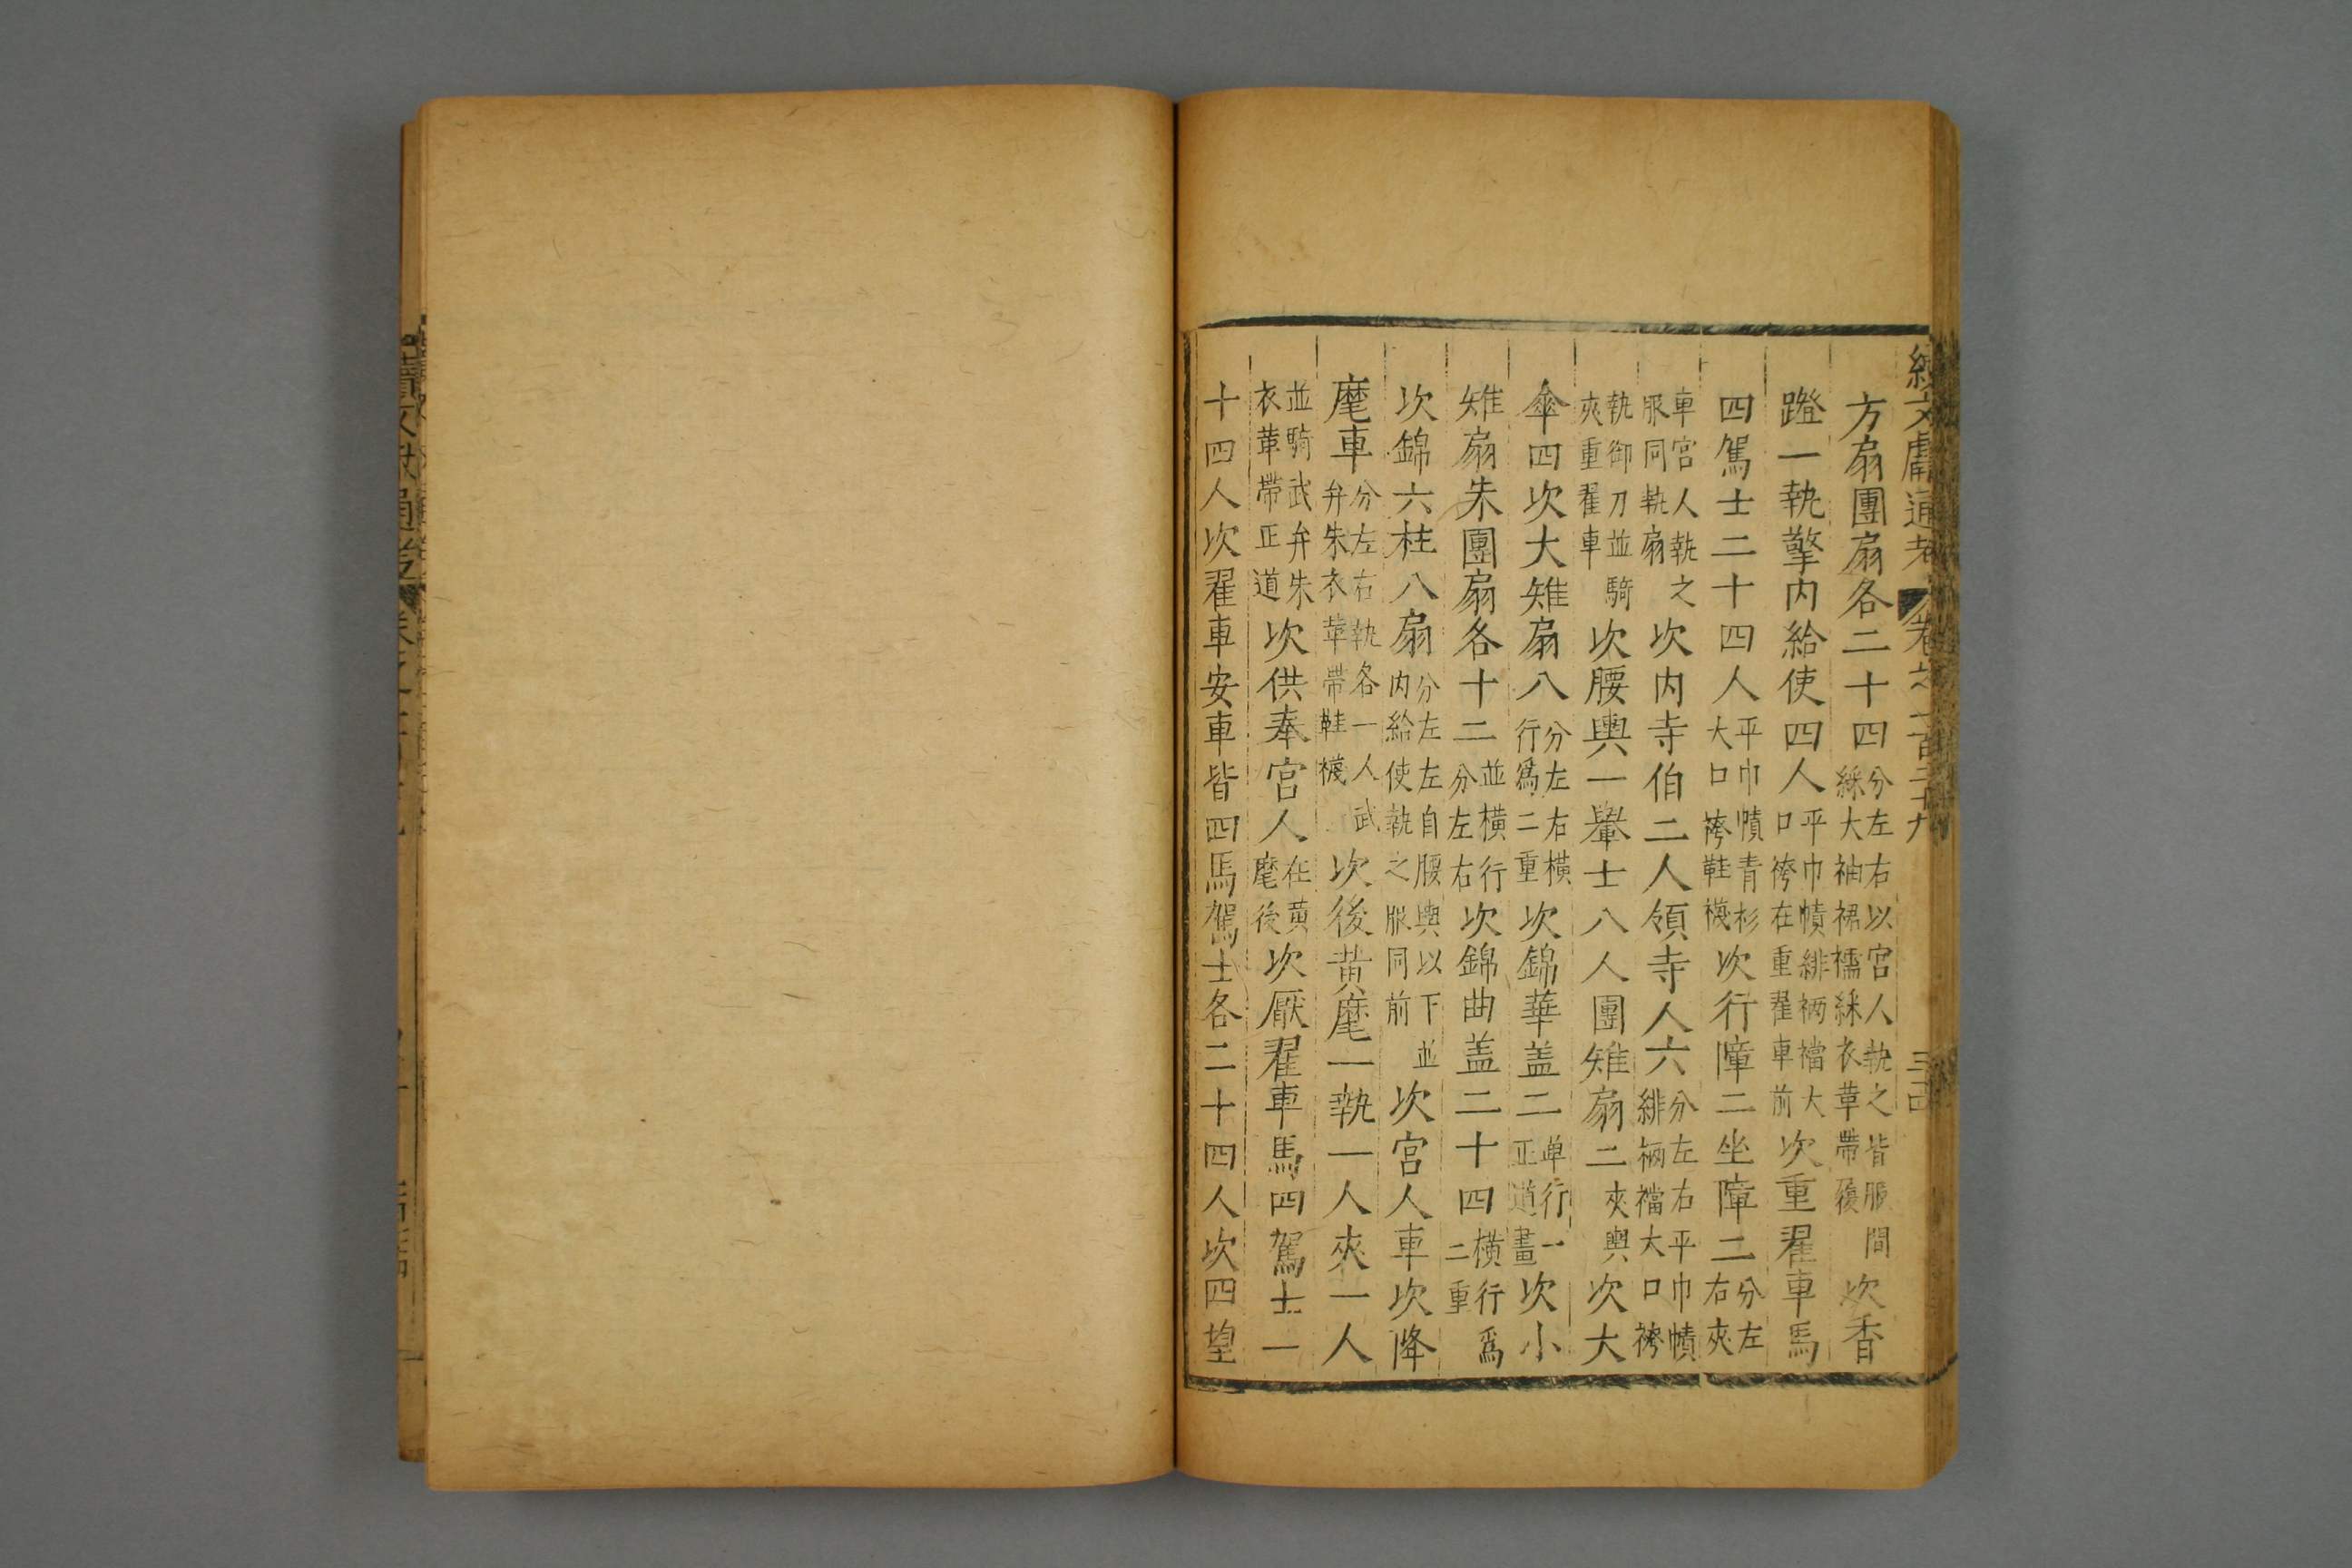 續文獻通考 卷之一百二十九 三十四
方扇團扇各二十四分左右以宮人執之皆服間綵大袖裙襦綵衣革帶履次香
蹬一執擎內給使四人平巾幘緋裲襠大口袴在重翟車前次重翟車馬
四駕士二十四人平巾幘青衫大口袴鞋襪次行障二坐障二分左右夾
車宮人執之服同執扇次內寺伯二人領寺人六分左右平巾幘緋裲襠大口袴
執御刀並騎夾重翟車次腰輿一轝士八人團雉扇二夾輿次大
傘四次大雉扇八分左右橫行為二重次錦華盖二单行一正道畫次小
雉扇朱團扇各十二並橫行分左右次錦曲盖二十四橫行爲二重
次錦六柱八扇分左左自腰輿以下並內給使執之服同前次宮人車次降
麾車分左右執各一人武弁朱衣革帶鞋襪次後黃麾一執一人夾一人
並騎武弁朱衣革帶正道次供奉宮人在黃麾後次厭翟車馬四駕士一
十四人次翟車安車皆四馬駕士各二十四人次四望